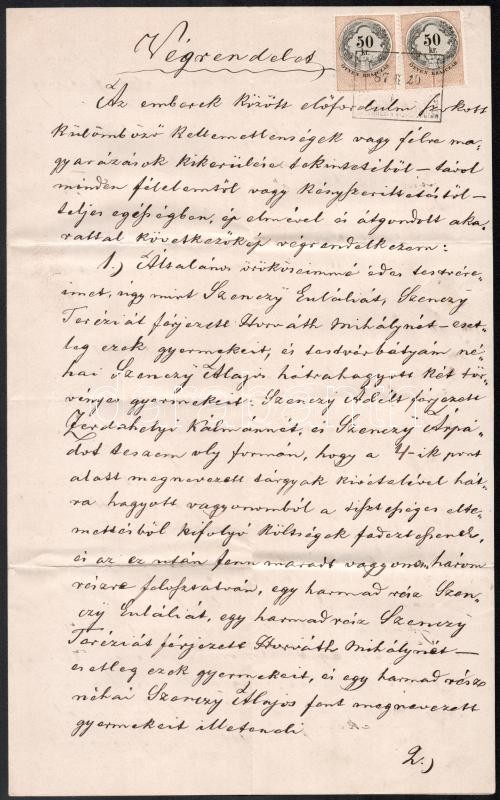 Végrendelet
50 kr.
ÖTVEN KRAJCZÁR
50 kr.
ÖTVEN KRAJCZÁR
Az emberek között előfordulni szokott
külömböző kellemetlenségek vagy félre ma-
gyarázások kikerülése tekintetéből – távol
minden félelemtől vagy kényszerittetéstől –
teljes egésségben, ép elmével és átgondolt aka-
rattal következőkép végrendelkezem:
1.) Általános örököseimmé édes testvére-
imet, úgy mint Szenczy Euláliát, Szenczy
Teréziát férjezett Horváth Mihálynét – eset-
leg ezek gyermekeit, és testvérbátyám né-
hai Szenczy Alajos hátrahagyott két tör-
vényes gyermekeit: Szenczy Adélt férjezett
Zerdahelyi Kálmánnét, és Szenczy Árpá-
dot teszem oly formán, hogy a 4-ik pont
alatt megnevezett tárgyak kivételével hát-
ra hagyott vagyonomból a tisztességes elte-
mettésből kifolyó költségek fedeztessenek,
és az ez után fenn maradt vagyonom három
részre felosztatván, egy harmad rész Szen-
czy Euláliát, egy harmad rész Szenczy
Teréziát férjezett Horváth Mihálynét –
esetleg ezek gyermekeit, és egy harmad rész
néhai Szenczy Alajos fent megnevezett
gyermekeit illetendi.
2.)